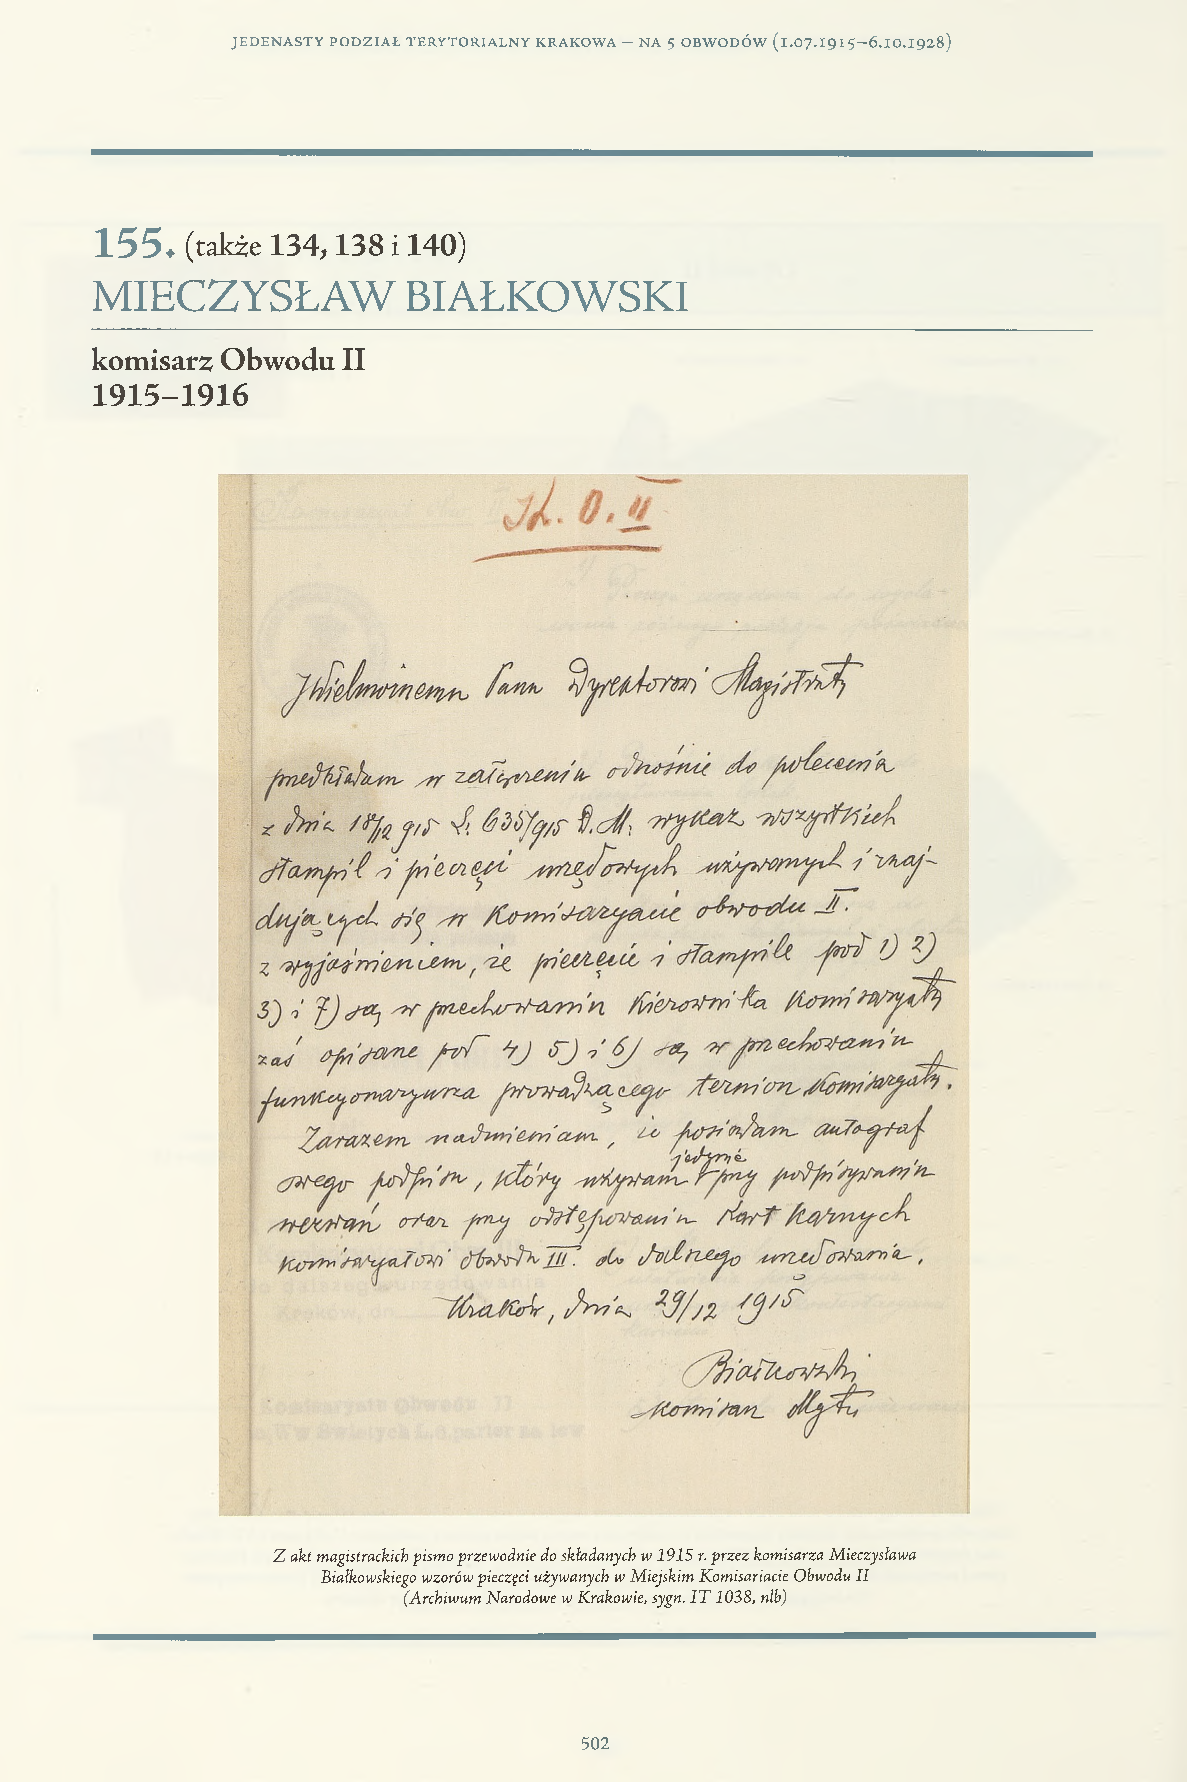 JEDENASTY PODZIAŁ TERYTORIALNY KRAKOWA – NA 5 OBWODÓW (1.07.1915–6.10.1928)
155. (także 134, 138 i 140)
MIECZYSŁAW BIAŁKOWSKI
komisarz Obwodu II
1915–1916
K. O. II
JWielmożnemu Panu Dyrektorowi Magistratu
przedkładam w załączeniu odnośnie do polecenia
z dnia 18/12 915 L: 635/915 D. M. wykaz wszystkich
stampil i pieczęci urzędowych używanych i znaj-
dujących się w Komisaryacie obwodu II.
z wyjaśnieniem, że pieczęcie i stampile pod 1) 2)
3) i 7) są w przechowaniu Kierownika Komisaryatu
zaś opisane pod 4) 5) i 6) są w przechowaniu
funkcyonaryusza prowadzącego Komisaryatu.
Zarazem nadmieniam, że posiadam autograf
swego podpisu, który używam jedynie przy podpisywaniu
wezwań oraz przy odstępowaniu Kart Karnych
Komisaryatowi obwodu III. do dalszego urzędowania.
Kraków, dnia 29/12 1915
Białkowski
Komisarz Mgtu
Z akt magistrackich pismo przewodnie do składanych w 1915 r. przez komisarza Mieczysława
Białkowskiego wzorów pieczęci używanych w Miejskim Komisariacie Obwodu II
(Archiwum Narodowe w Krakowie, sygn. IT 1038, nlb)
502